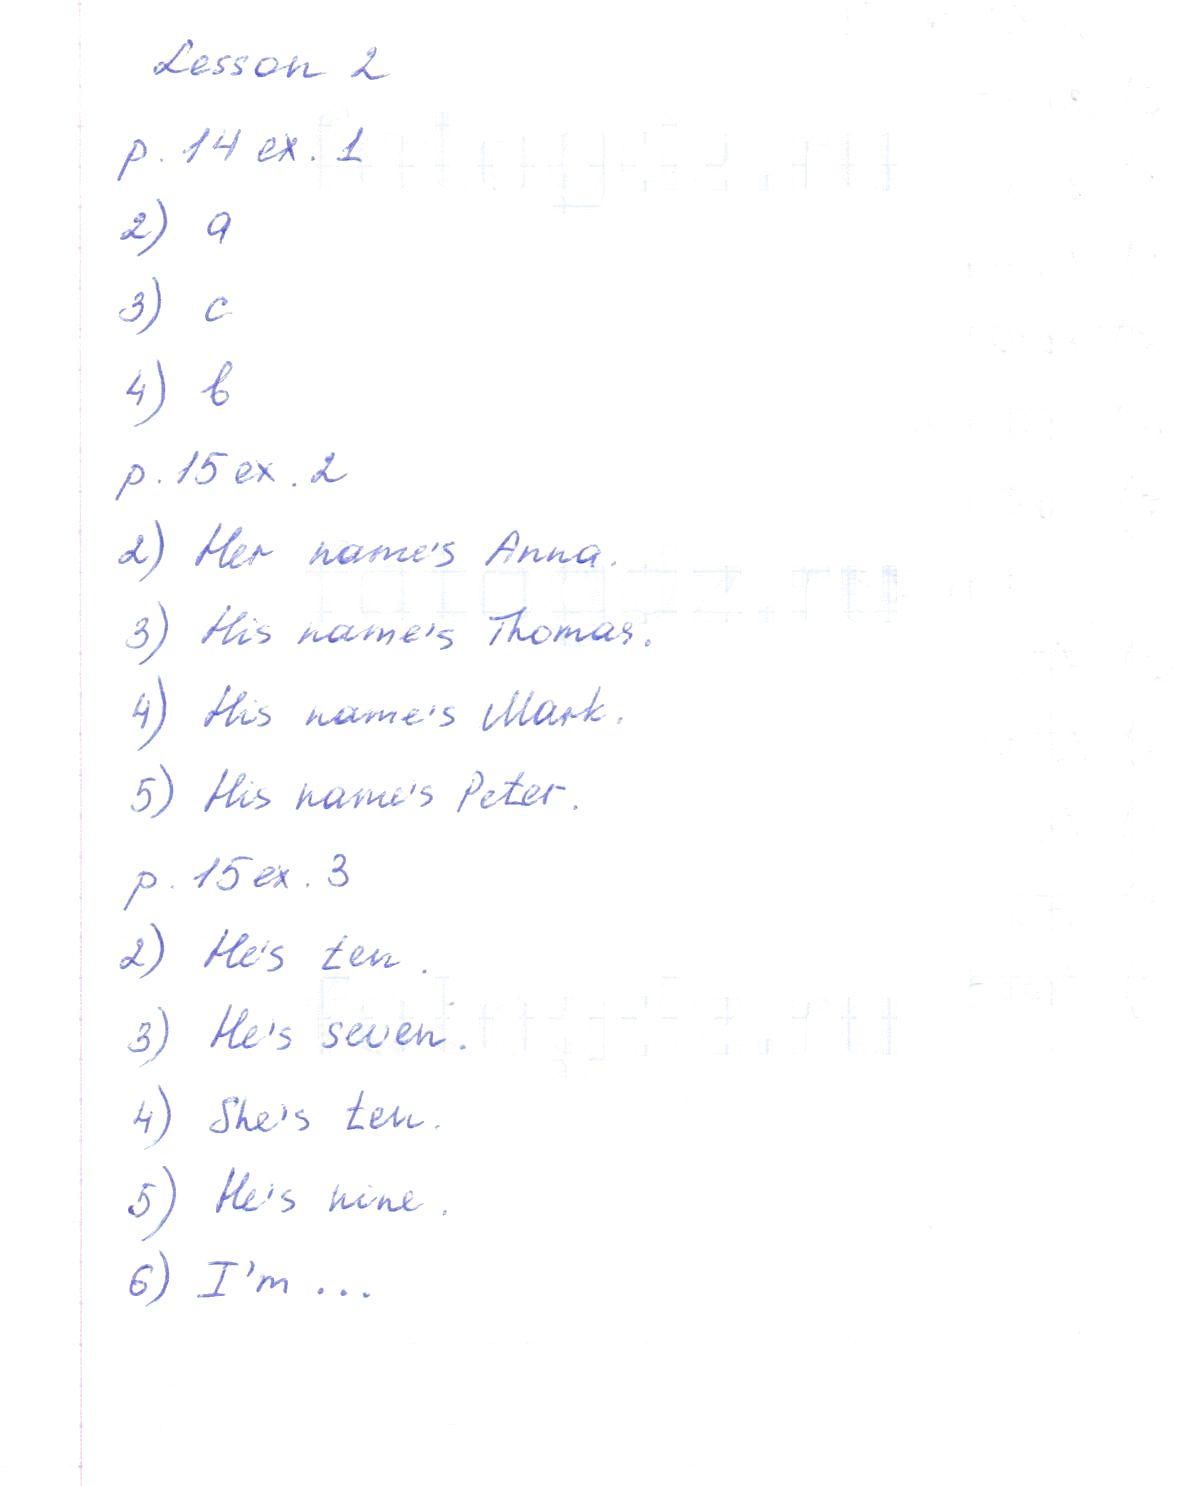 Lesson 2
p. 14 ex. 1
2) a
3) c
4) b
p. 15 ex. 2
2) Her name's Anna.
3) His name's Thomas.
4) His name's Mark.
5) His name's Peter.
p. 15 ex. 3
2) He's ten.
3) He's seven.
4) She's ten.
5) He's nine.
6) I'm ...